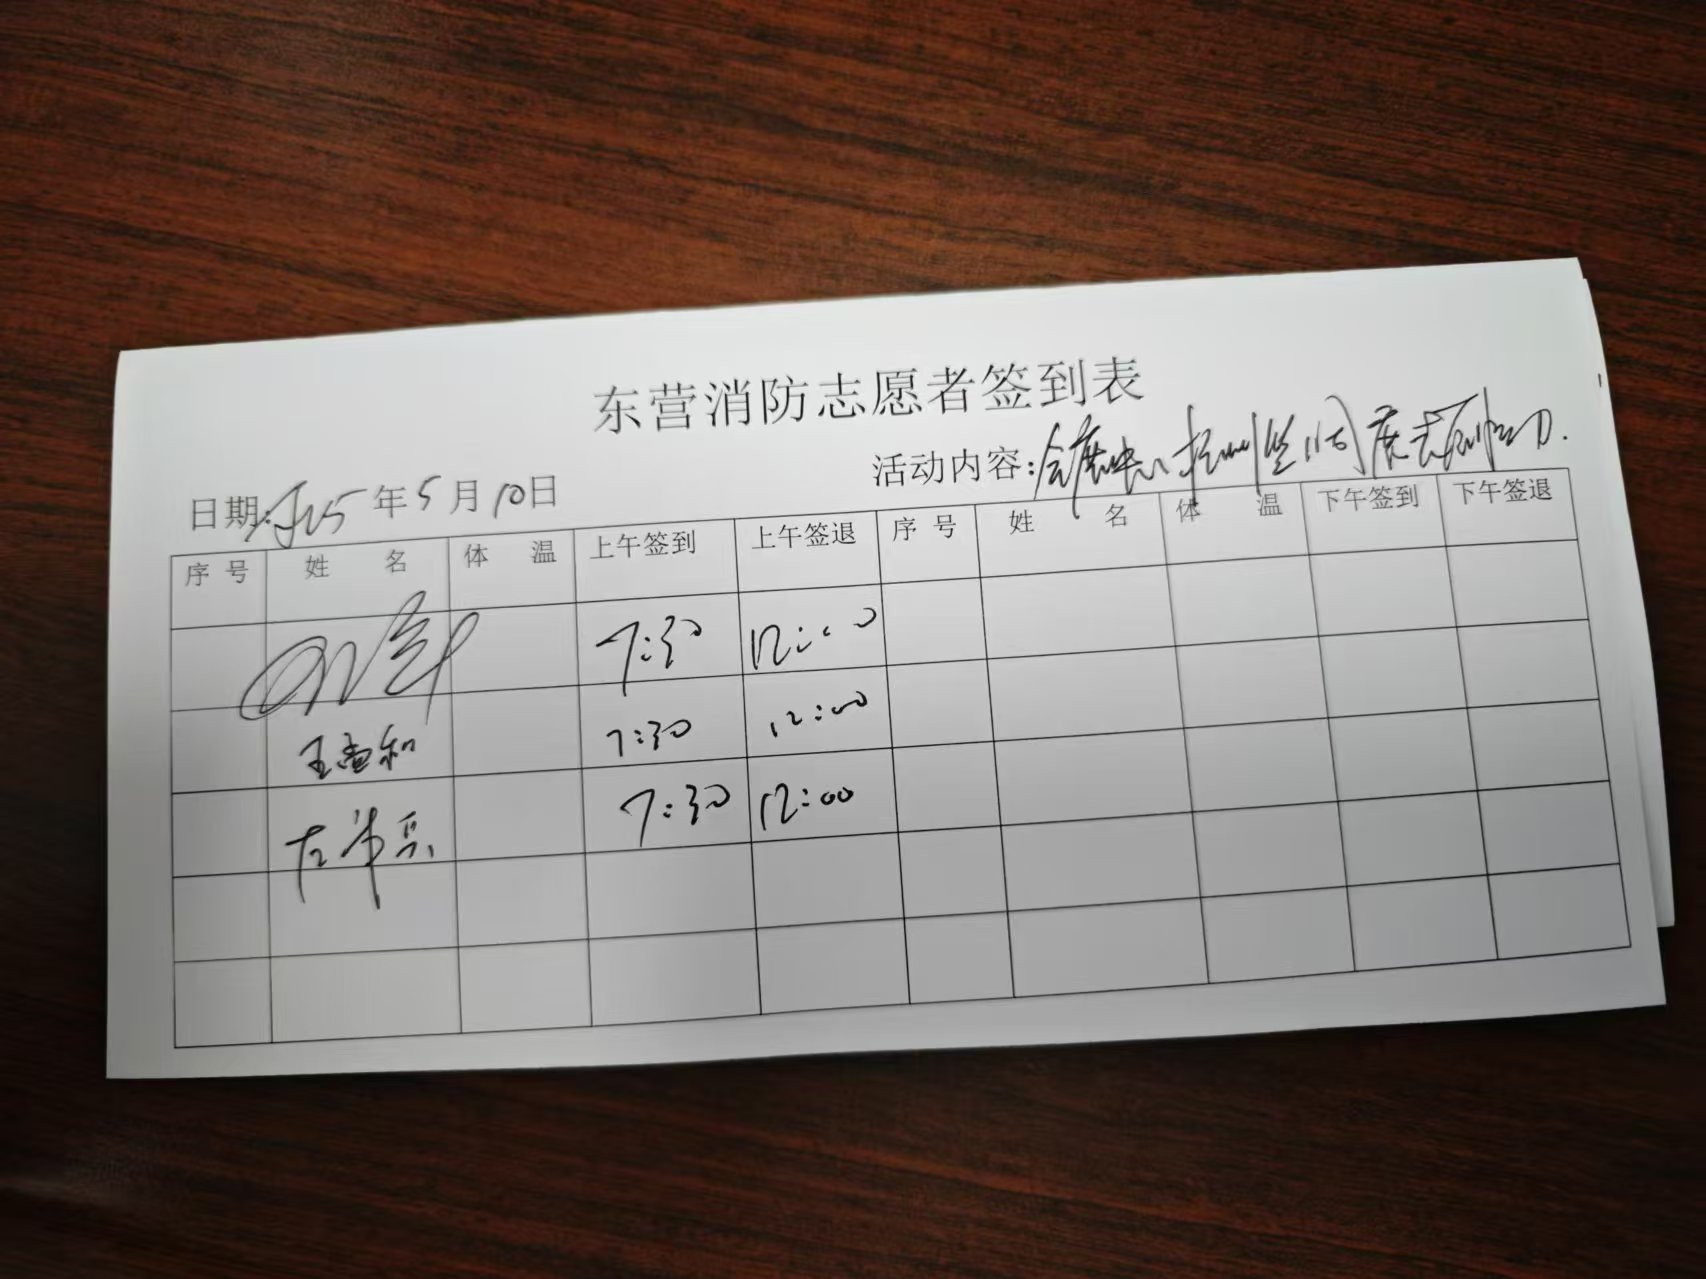 东营消防志愿者签到表
日期: 2025年5月10日 活动内容: 会展中心
序号 姓名 体温 上午签到 上午签退 序号 姓名 体温 下午签到 下午签退
7:30 12:00
王孟和 7:30 12:00
左 7:30 12:00